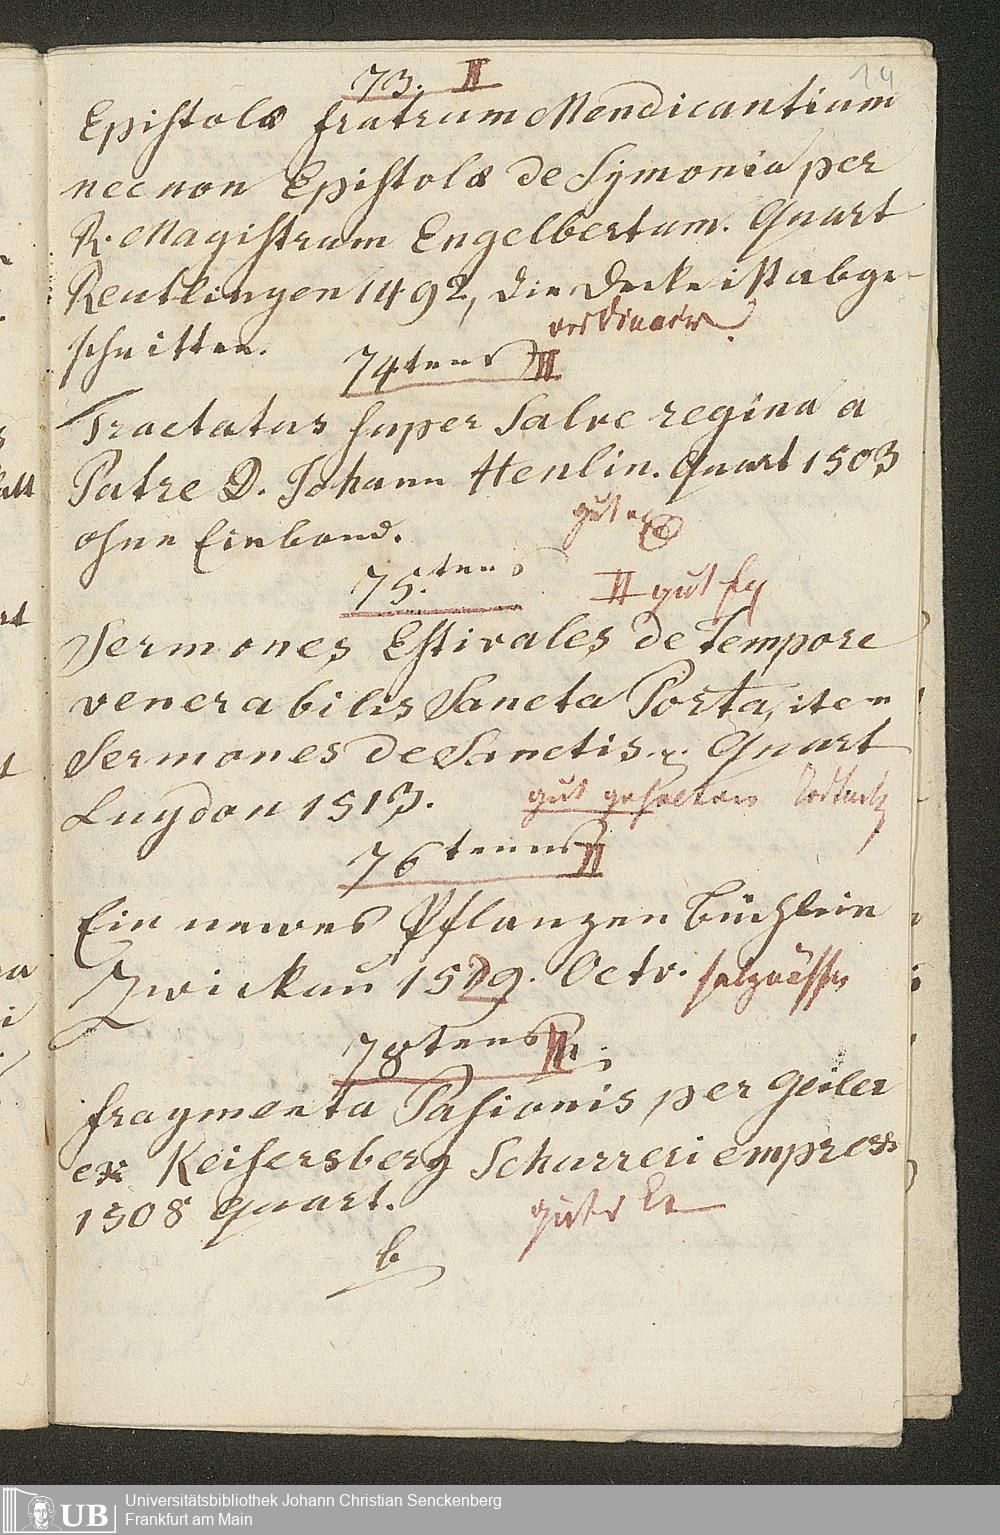 14
73. II
Epistolæ fratrum Mendicantium
nec non Epistolæ de Symonia per
R. Magistrum Engelbertum. Quart
Reutlingen 1492, die Decke ist abge-
schnitten.
74tens II
Tractatus super Salve regina a
Patre D. Johann Henlin. Quart 1503
gut
ohne Einband.
75.tens II gut
Sermones Estivales de Tempore
venerabilis Sancta Porta, item
Sermones de Sanctis. Quart
Lugdon 1513. gut gehalten
76tenns II
Ein newes Pflanzen Büchlein
Zwickau 1529. Octv.
78tens II
fragmenta Pasionis per Geiler
ex Keisersberg Schurreri empress
1508 quart. guter Ex
b
UB
Universitätsbibliothek Johann Christian Senckenberg
Frankfurt am Main